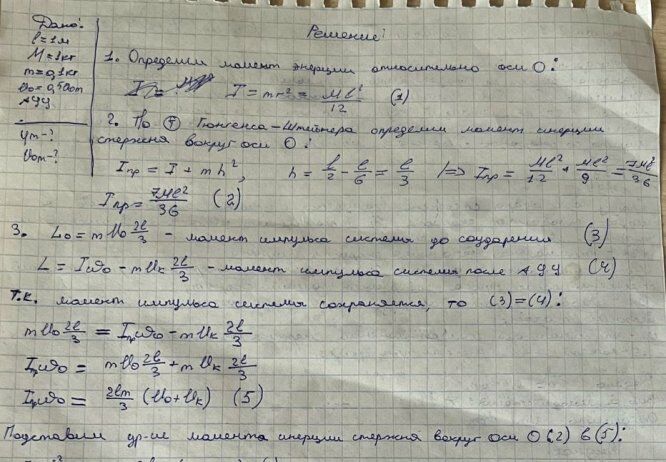 Дано:
l = 1м
M = 1кг
m = 0,1кг
АУУ
φm - ?
υom - ?
Решение:
1. Определим момент энерции относительно оси O:
I = mr² = Ml²/12 (1)
2. По Т Гюйгенса-Штейнера определим момент инерции
стержня вокруг оси O:
Iпр = I + mh², h = l/2 - l/6 = l/3 |=> Iпр = Ml²/12 + Ml²/9 = 7Ml²/36
Iпр = 7Ml²/36 (2)
3. L₀ = mυ₀ 2l/3 - момент импульса системы до соударения (3)
L = Iω₀ - mυк 2l/3 - момент импульса системы после АУУ (4)
Т.к. момент импульса системы сохраняется, то (3)=(4):
mυ₀ 2l/3 = Iпω₀ - mυк 2l/3
Iпω₀ = mυ₀ 2l/3 + mυк 2l/3
Iпω₀ = 2lm/3 (υ₀ + υк) (5)
Подставим ур-ие момента инерции стержня вокруг оси O (2) в (5):